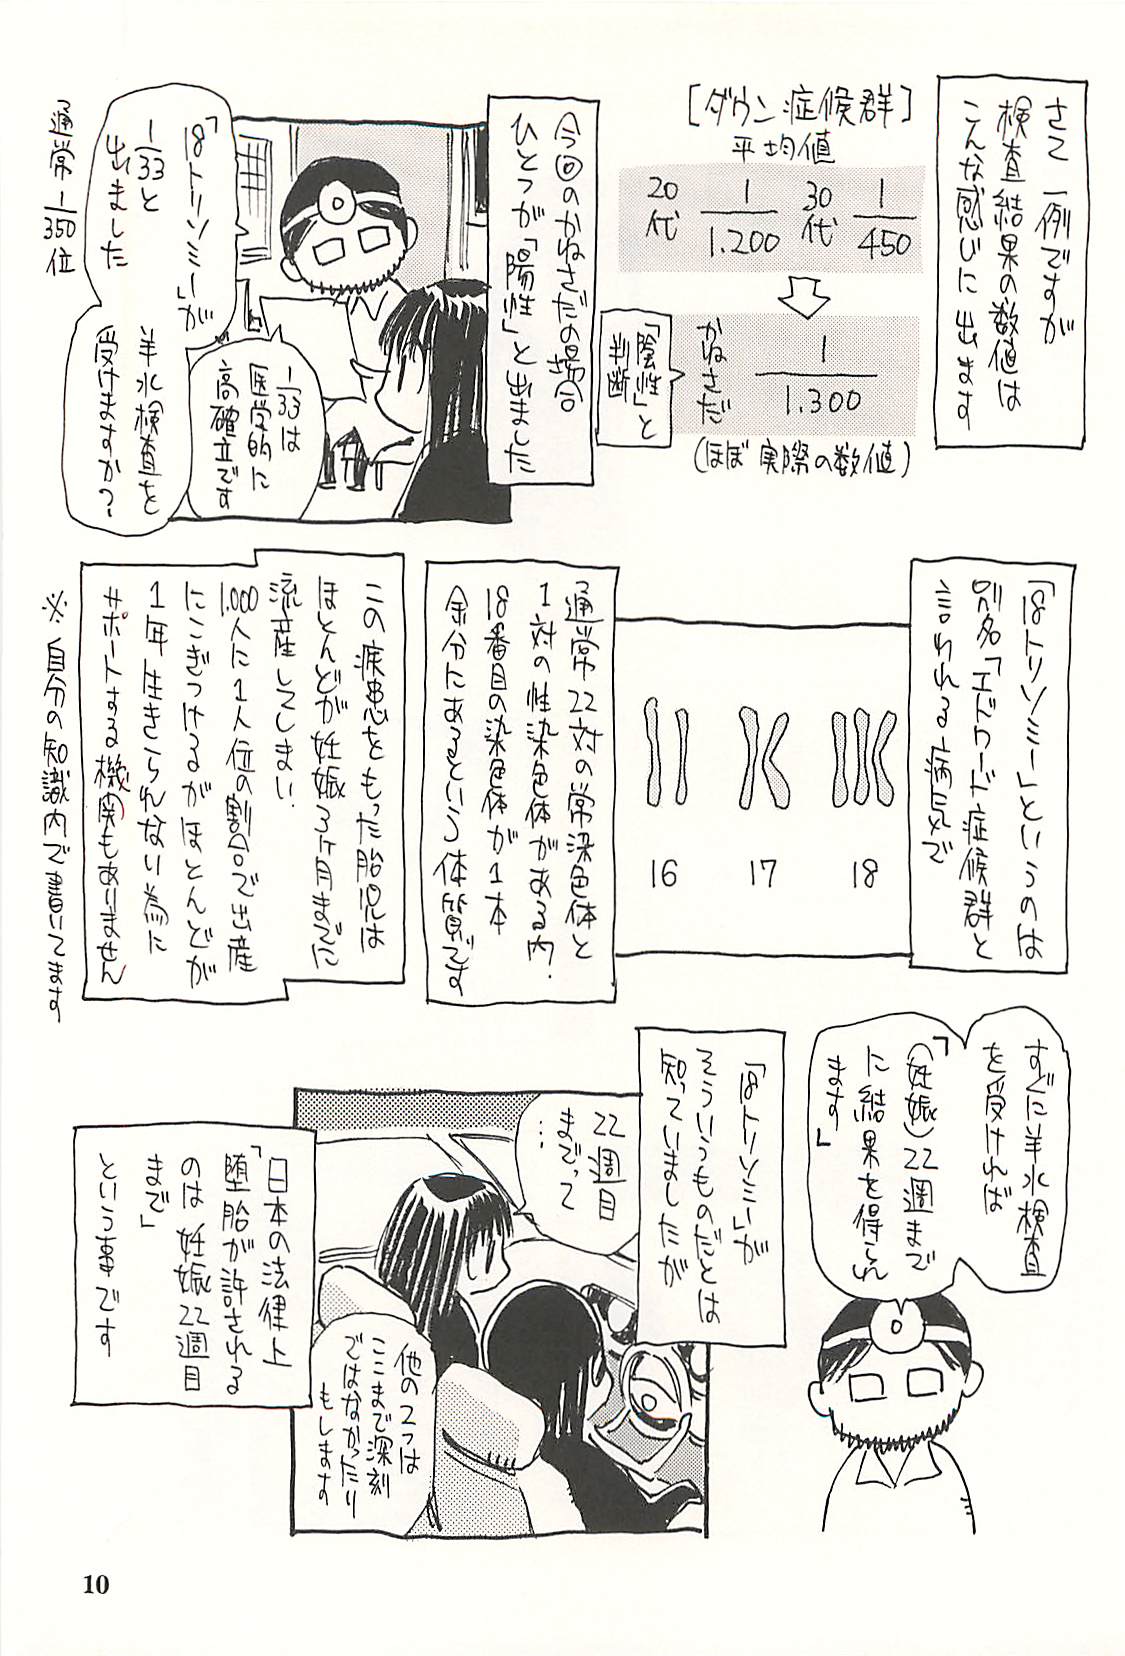 さて 一例ですが
検査結果の数値は
こんな感じに出ます
［ダウン症候群］
平均値
20代 1/1.200
30代 1/450
かねさだ 1/1.300
「陰性」と
判断
(ほぼ実際の数値)
今回のかねさだの場合
ひとつが「陽性」と出ました
「18トリソミー」が
1/33と
出ました
1/33は
医学的に
高確立です
羊水検査を
受けますか?
通常 1/350位
「18トリソミー」というのは
別名「エドワード症候群」と
言われる病気で
16
17
18
通常22対の常染色体と
1対の性染色体がある内、
18番目の染色体が1本
余分にあるという体質です
この疾患をもった胎児は
ほとんどが妊娠3ヶ月までに
流産してしまい、
1.000人に1人位の割合で出産
にこぎつけるがほとんどが
1年生きられない為に
サポートする機関もありません
※自分の知識内で書いてます
すぐに羊水検査
を受ければ
「(妊娠)22週まで
に結果を得られ
ます」
「18トリソミー」が
そういうものだとは
知っていましたが
22週目
までって
…
他の2つは
ここまで深刻
ではなかったり
もします
「日本の法律上
堕胎が許される
のは妊娠22週目
まで」
という事です
10